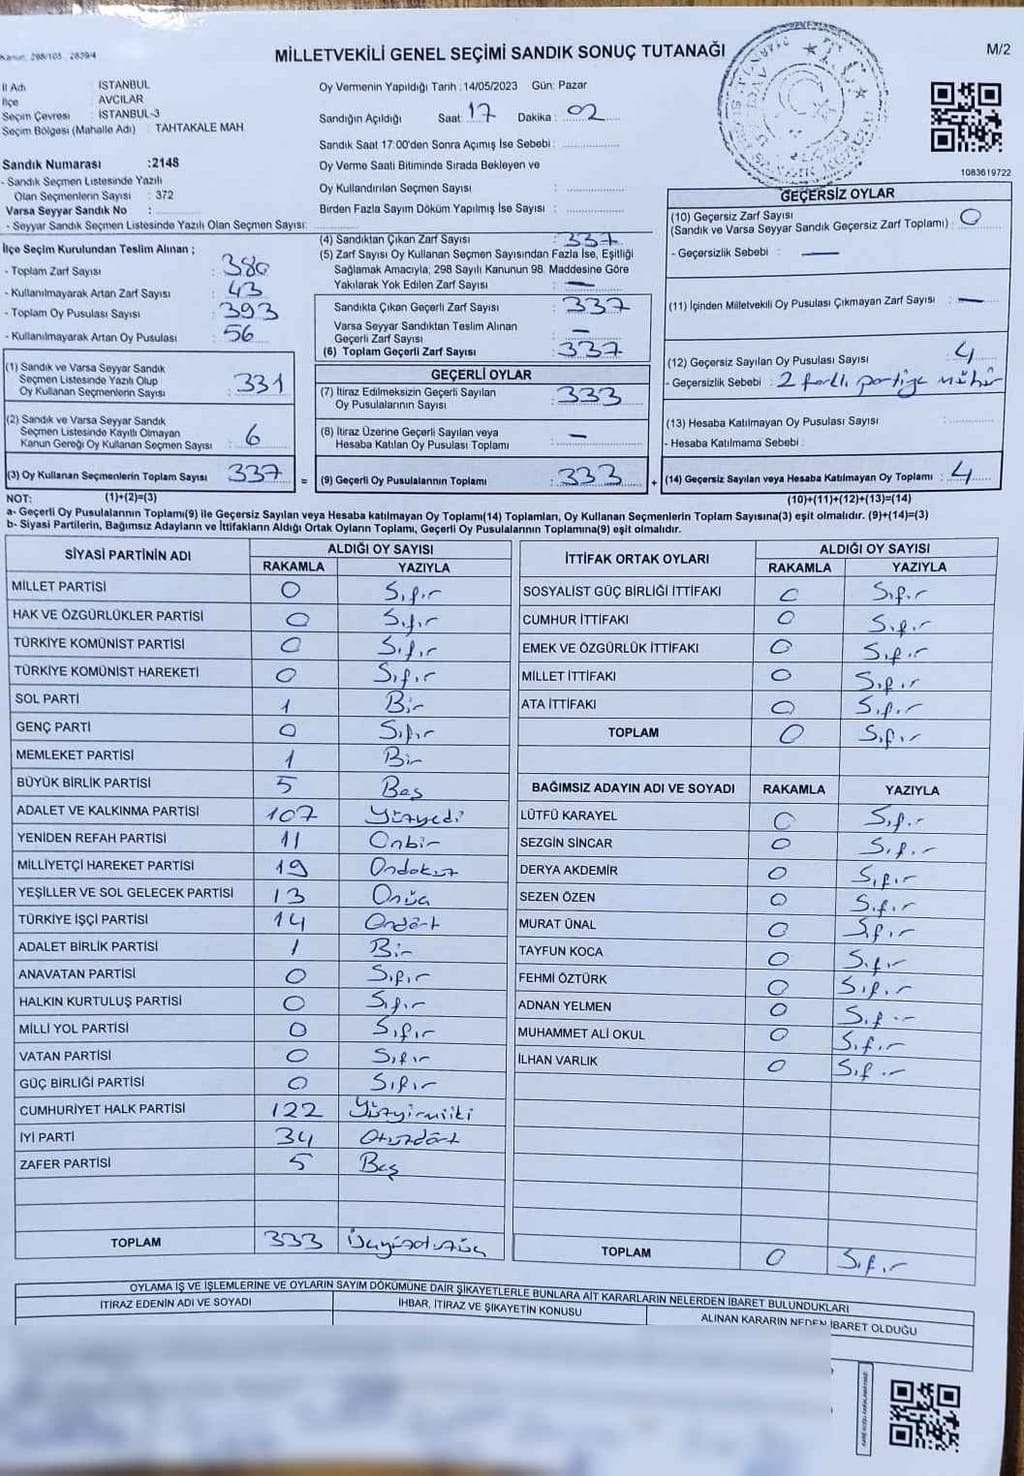 Kanun: 298/105 2839/4
MİLLETVEKİLİ GENEL SEÇİMİ SANDIK SONUÇ TUTANAĞI
M/2
İl Adı : İSTANBUL
İlçe : AVCILAR
Seçim Çevresi : İSTANBUL-3
Seçim Bölgesi (Mahalle Adı) : TAHTAKALE MAH
Sandık Numarası :2148
- Sandık Seçmen Listesinde Yazılı
Olan Seçmenlerin Sayısı : 372
Varsa Seyyar Sandık No :
- Seyyar Sandık Seçmen Listesinde Yazılı Olan Seçmen Sayısı:
Oy Vermenin Yapıldığı Tarih :14/05/2023 Gün: Pazar
Sandığın Açıldığı Saat: 17 Dakika: 02
Sandık Saat 17:00'den Sonra Açımış İse Sebebi :
Oy Verme Saati Bitiminde Sırada Bekleyen ve
Oy Kullandırılan Seçmen Sayısı :
Birden Fazla Sayım Döküm Yapılmış İse Sayısı :
1083619722
İlçe Seçim Kurulundan Teslim Alınan ;
- Toplam Zarf Sayısı : 380
- Kullanılmayarak Artan Zarf Sayısı : 43
- Toplam Oy Pusulası Sayısı : 393
- Kullanılmayarak Artan Oy Pusulası : 56
(1) Sandık ve Varsa Seyyar Sandık
Seçmen Listesinde Yazılı Olup
Oy Kullanan Seçmenlerin Sayısı : 331
(2) Sandık ve Varsa Seyyar Sandık
Seçmen Listesinde Kayıtlı Olmayan
Kanun Gereği Oy Kullanan Seçmen Sayısı : 6
(3) Oy Kullanan Seçmenlerin Toplam Sayısı : 337
=
(4) Sandıktan Çıkan Zarf Sayısı : 337
(5) Zarf Sayısı Oy Kullanan Seçmen Sayısından Fazla İse, Eşitliği
Sağlamak Amacıyla; 298 Sayılı Kanunun 98. Maddesine Göre
Yakılarak Yok Edilen Zarf Sayısı : —
Sandıkta Çıkan Geçerli Zarf Sayısı : 337
Varsa Seyyar Sandıktan Teslim Alınan
Geçerli Zarf Sayısı : —
(6) Toplam Geçerli Zarf Sayısı : 337
GEÇERLİ OYLAR
(7) İtiraz Edilmeksizin Geçerli Sayılan
Oy Pusulalarının Sayısı : 333
(8) İtiraz Üzerine Geçerli Sayılan veya
Hesaba Katılan Oy Pusulası Toplamı : —
(9) Geçerli Oy Pusulalarının Toplamı : 333
+
GEÇERSİZ OYLAR
(10) Geçersiz Zarf Sayısı
(Sandık ve Varsa Seyyar Sandık Geçersiz Zarf Toplamı) : 0
- Geçersizlik Sebebi : —
(11) İçinden Milletvekili Oy Pusulası Çıkmayan Zarf Sayısı : —
(12) Geçersiz Sayılan Oy Pusulası Sayısı : 4
- Geçersizlik Sebebi : 2 farklı partiye mühür
(13) Hesaba Katılmayan Oy Pusulası Sayısı :
- Hesaba Katılmama Sebebi :
(14) Geçersiz Sayılan veya Hesaba Katılmayan Oy Toplamı : 4
NOT: (1)+(2)=(3) (10)+(11)+(12)+(13)=(14)
a- Geçerli Oy Pusulalarının Toplamı(9) ile Geçersiz Sayılan veya Hesaba katılmayan Oy Toplamı(14) Toplamları, Oy Kullanan Seçmenlerin Toplam Sayısına(3) eşit olmalıdır. (9)+(14)=(3)
b- Siyasi Partilerin, Bağımsız Adayların ve İttifakların Aldığı Ortak Oyların Toplamı, Geçerli Oy Pusulalarının Toplamına(9) eşit olmalıdır.
SİYASİ PARTİNİN ADI ALDIĞI OY SAYISI
RAKAMLA YAZIYLA
MİLLET PARTİSİ 0 Sıfır
HAK VE ÖZGÜRLÜKLER PARTİSİ 0 Sıfır
TÜRKİYE KOMÜNİST PARTİSİ 0 Sıfır
TÜRKİYE KOMÜNİST HAREKETİ 0 Sıfır
SOL PARTİ 1 Bir
GENÇ PARTİ 0 Sıfır
MEMLEKET PARTİSİ 1 Bir
BÜYÜK BİRLİK PARTİSİ 5 Beş
ADALET VE KALKINMA PARTİSİ 107 Yüzyedi
YENİDEN REFAH PARTİSİ 11 Onbir
MİLLİYETÇİ HAREKET PARTİSİ 19 Ondokuz
YEŞİLLER VE SOL GELECEK PARTİSİ 13 Onüç
TÜRKİYE İŞÇİ PARTİSİ 14 Ondört
ADALET BİRLİK PARTİSİ 1 Bir
ANAVATAN PARTİSİ 0 Sıfır
HALKIN KURTULUŞ PARTİSİ 0 Sıfır
MİLLİ YOL PARTİSİ 0 Sıfır
VATAN PARTİSİ 0 Sıfır
GÜÇ BİRLİĞİ PARTİSİ 0 Sıfır
CUMHURİYET HALK PARTİSİ 122 Yüzyirmiiki
İYİ PARTİ 34 Otuzdört
ZAFER PARTİSİ 5 Beş
TOPLAM 333 Üçyüzotuzüç
İTTİFAK ORTAK OYLARI ALDIĞI OY SAYISI
RAKAMLA YAZIYLA
SOSYALİST GÜÇ BİRLİĞİ İTTİFAKI 0 Sıfır
CUMHUR İTTİFAKI 0 Sıfır
EMEK VE ÖZGÜRLÜK İTTİFAKI 0 Sıfır
MİLLET İTTİFAKI 0 Sıfır
ATA İTTİFAKI 0 Sıfır
TOPLAM 0 Sıfır
BAĞIMSIZ ADAYIN ADI VE SOYADI RAKAMLA YAZIYLA
LÜTFÜ KARAYEL 0 Sıfır
SEZGİN SİNCAR 0 Sıfır
DERYA AKDEMİR 0 Sıfır
SEZEN ÖZEN 0 Sıfır
MURAT ÜNAL 0 Sıfır
TAYFUN KOCA 0 Sıfır
FEHMİ ÖZTÜRK 0 Sıfır
ADNAN YELMEN 0 Sıfır
MUHAMMET ALİ OKUL 0 Sıfır
İLHAN VARLIK 0 Sıfır
TOPLAM 0 Sıfır
OYLAMA İŞ VE İŞLEMLERİNE VE OYLARIN SAYIM DÖKÜMÜNE DAİR ŞİKAYETLERLE BUNLARA AİT KARARLARIN NELERDEN İBARET BULUNDUKLARI
İTİRAZ EDENİN ADI VE SOYADI İHBAR, İTİRAZ VE ŞİKAYETİN KONUSU ALINAN KARARIN NEDEN İBARET OLDUĞU